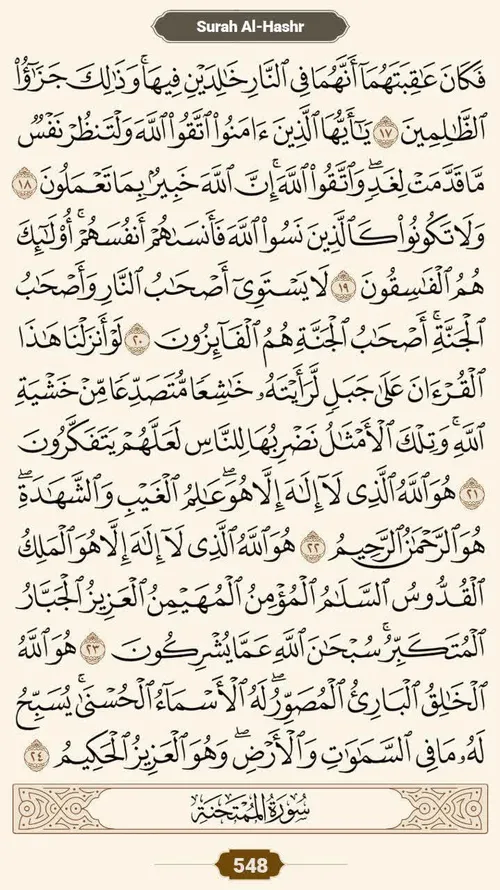 Surah Al-Hashr
فَكَانَ عَـٰقِبَتَهُمَآ أَنَّهُمَا فِى ٱلنَّارِ خَـٰلِدَيْنِ فِيهَا ۚ وَذَٰلِكَ جَزَٰٓؤُا۟
ٱلظَّـٰلِمِينَ ١٧ يَـٰٓأَيُّهَا ٱلَّذِينَ ءَامَنُوا۟ ٱتَّقُوا۟ ٱللَّهَ وَلْتَنظُرْ نَفْسٌ
مَّا قَدَّمَتْ لِغَدٍ ۖ وَٱتَّقُوا۟ ٱللَّهَ ۚ إِنَّ ٱللَّهَ خَبِيرٌۢ بِمَا تَعْمَلُونَ ١٨
وَلَا تَكُونُوا۟ كَٱلَّذِينَ نَسُوا۟ ٱللَّهَ فَأَنسَىٰهُمْ أَنفُسَهُمْ ۚ أُو۟لَـٰٓئِكَ
هُمُ ٱلْفَـٰسِقُونَ ١٩ لَا يَسْتَوِىٓ أَصْحَـٰبُ ٱلنَّارِ وَأَصْحَـٰبُ
ٱلْجَنَّةِ ۚ أَصْحَـٰبُ ٱلْجَنَّةِ هُمُ ٱلْفَآئِزُونَ ٢٠ لَوْ أَنزَلْنَا هَـٰذَا
ٱلْقُرْءَانَ عَلَىٰ جَبَلٍ لَّرَأَيْتَهُۥ خَـٰشِعًا مُّتَصَدِّعًا مِّنْ خَشْيَةِ
ٱللَّهِ ۚ وَتِلْكَ ٱلْأَمْثَـٰلُ نَضْرِبُهَا لِلنَّاسِ لَعَلَّهُمْ يَتَفَكَّرُونَ
٢١ هُوَ ٱللَّهُ ٱلَّذِى لَآ إِلَـٰهَ إِلَّا هُوَ ۖ عَـٰلِمُ ٱلْغَيْبِ وَٱلشَّهَـٰدَةِ ۖ
هُوَ ٱلرَّحْمَـٰنُ ٱلرَّحِيمُ ٢٢ هُوَ ٱللَّهُ ٱلَّذِى لَآ إِلَـٰهَ إِلَّا هُوَ ٱلْمَلِكُ
ٱلْقُدُّوسُ ٱلسَّلَـٰمُ ٱلْمُؤْمِنُ ٱلْمُهَيْمِنُ ٱلْعَزِيزُ ٱلْجَبَّارُ
ٱلْمُتَكَبِّرُ ۚ سُبْحَـٰنَ ٱللَّهِ عَمَّا يُشْرِكُونَ ٢٣ هُوَ ٱللَّهُ
ٱلْخَـٰلِقُ ٱلْبَارِئُ ٱلْمُصَوِّرُ ۖ لَهُ ٱلْأَسْمَآءُ ٱلْحُسْنَىٰ ۚ يُسَبِّحُ
لَهُۥ مَا فِى ٱلسَّمَـٰوَٰتِ وَٱلْأَرْضِ ۖ وَهُوَ ٱلْعَزِيزُ ٱلْحَكِيمُ ٢٤
سُورَةُ المُمْتَحنَةِ
548